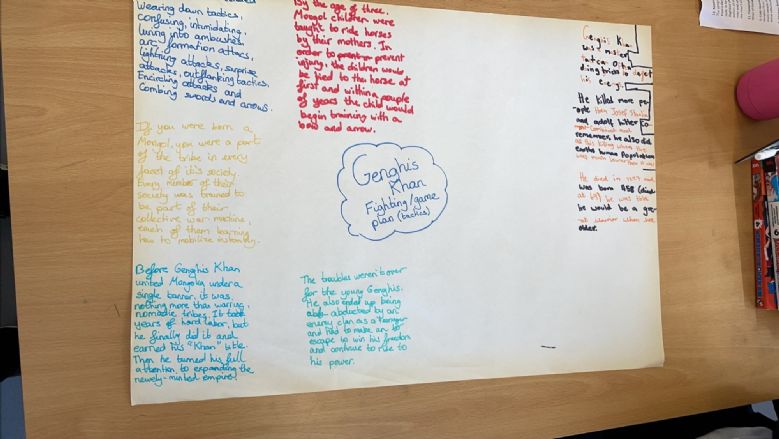 Wearing down tactics,
confusing, intimidating,
luring into ambushes,
arc formation attacs,
lightning attacks, surprise
attacks, outflanking tactics,
Encircling attacks and
Combing swords and arrows.
By the age of three.
Mongol children were
taught to ride horses
by their mothers. In
order to prevent
injury. the children would
be tied to the horse at
first and within a couple
of years the child would
begin training with a
bow and arrow.
If you were born a
Mongol, you were a part
of the tribe in every
facet of it's society
Every member of their
society was trained to
be part of their
collective war machine,
each of them learning
how to mobilize instantly.
Before Genghis Khan
united Mongolia under a
single banner. it was
nothing more than warring,
nomadic tribes. It took
years of hard labor, but
he finally did it and
earned his "Khan" title.
Then he turned his full
attention to expanding the
newly-minted empire!
Genghis
Khan
Fighting/game
plan (tactics)
The troubles weren't over
for the young Genghis.
He also ended up being
abducted by an
enemy clan as a teenager
and had to make an
escape to win his freedom
and continue to rise to
his power.
Genghis Khan
was a master
He killed more pe-
ople then Josef
and adolf hitler co-
remember, he also did
this killing when the
earths human Population
was much lower
He died in 1227 and
was born
at 69). he was told
he would be a gre-
at warrior when
older.